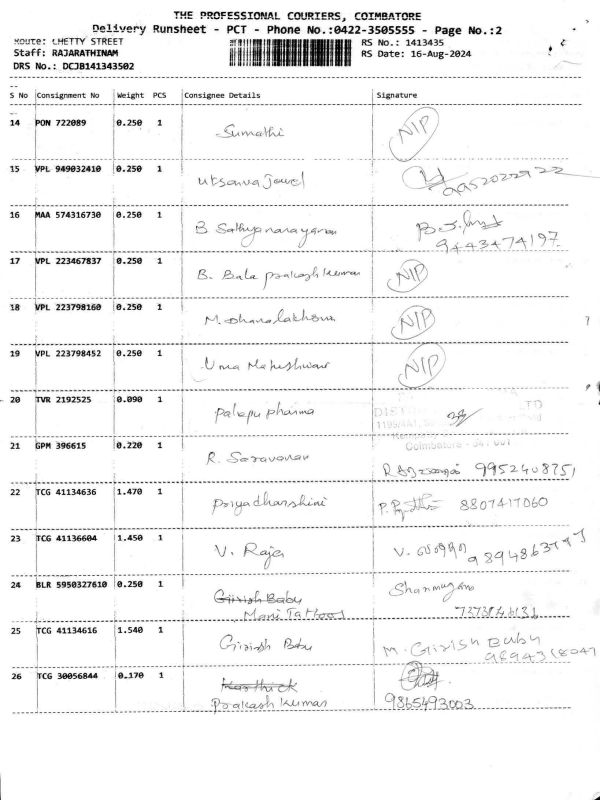 THE PROFESSIONAL COURIERS, COIMBATORE
Delivery Runsheet - PCT - Phone No.:0422-3505555 - Page No.:2
Route: CHETTY STREET RS No.: 1413435
Staff: RAJARATHINAM RS Date: 16-Aug-2024
DRS No.: DCJB141343502
S No Consignment No Weight PCS Consignee Details Signature
14 PON 722089 0.250 1 Sumathi NIP
15 VPL 949032410 0.250 1 utsava jewel
16 MAA 574316730 0.250 1 B Sathyanarayanan 9443474197
17 VPL 223467837 0.250 1 B. Bala prakash kumar NIP
18 VPL 223798160 0.250 1 M. Dhanalakshmi NIP
19 VPL 223798452 0.250 1 Uma Maheshwari NIP
20 TVR 2192525 0.090 1 palepu pharma
Coimbatore - 641 001
21 GPM 396615 0.220 1 R. Saravanan 9952408751
22 TCG 41134636 1.470 1 priyadharshini 8807417060
23 TCG 41136604 1.450 1 V. Raja
24 BLR 5950327610 0.250 1 Girish Babu Shanmugam
Mani Tattoos
25 TCG 41134616 1.540 1 Girish Babu M. Girish Babu
26 TCG 30056844 0.170 1 Karthick
Prakash kumar 9865493003